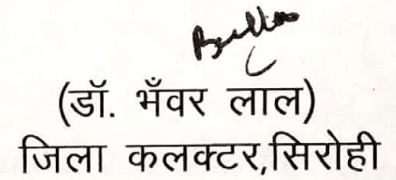 (डॉ. भँवर लाल)
जिला कलक्टर,सिरोही